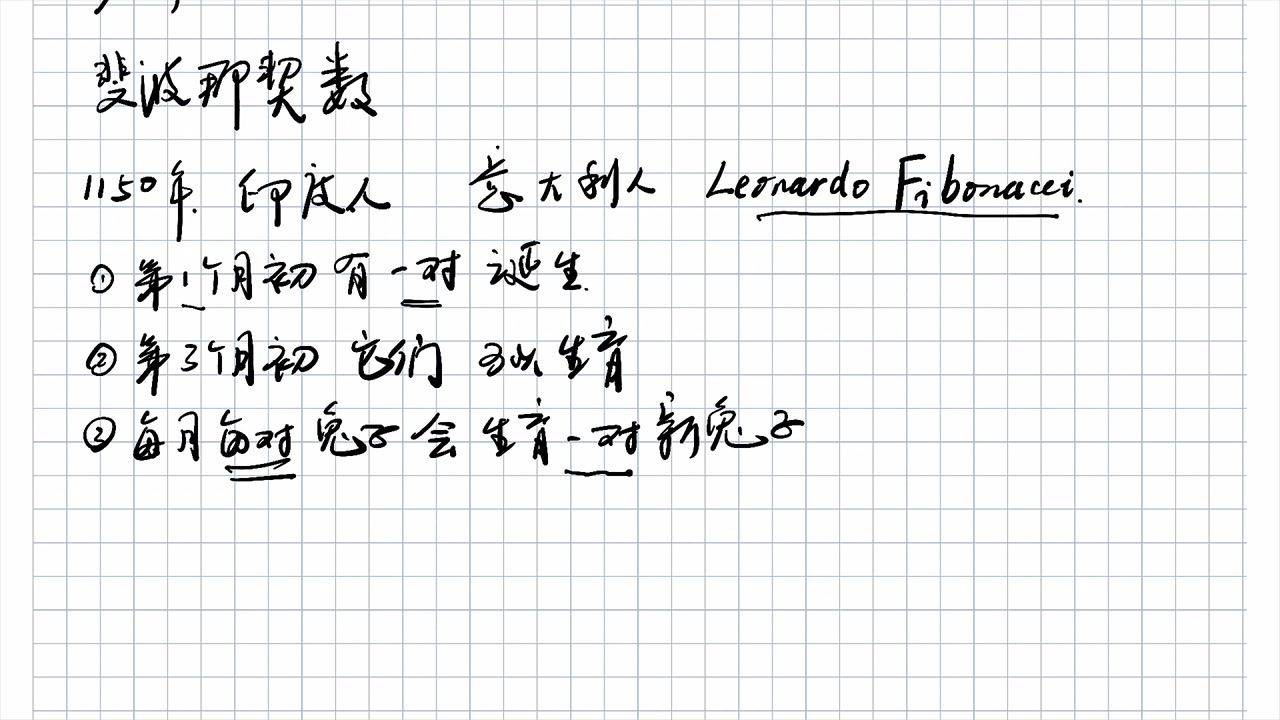 斐波那契数
1150年 印度人 意大利人 Leonardo Fibonacci.
① 第1个月初 有一对 诞生.
② 第3个月初 它们 可以 生育
③ 每月每对 兔子 会 生育 一对 新兔子